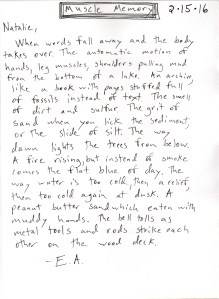 Muscle Memory
2-15-16
Natalie,
When words fall away and the body
takes over. The automatic motion of
hands, leg muscles, shoulders pulling mud
from the bottom of a lake. An archive,
like a book with pages stuffed full
of fossils instead of text. The smell
of dirt and sulfur. The grit of
sand when you lick the sediment,
or the slide of silt. The way
dawn lights the trees from below.
A fire rising, but instead of smoke
comes the flat blue of day. The
way water is too cold, then a relief,
then too cold again at dusk. A
peanut butter sandwhich eaten with
muddy hands. The bell tolls as
metal tools and rods strike each
other on the wood deck.
- E. A.